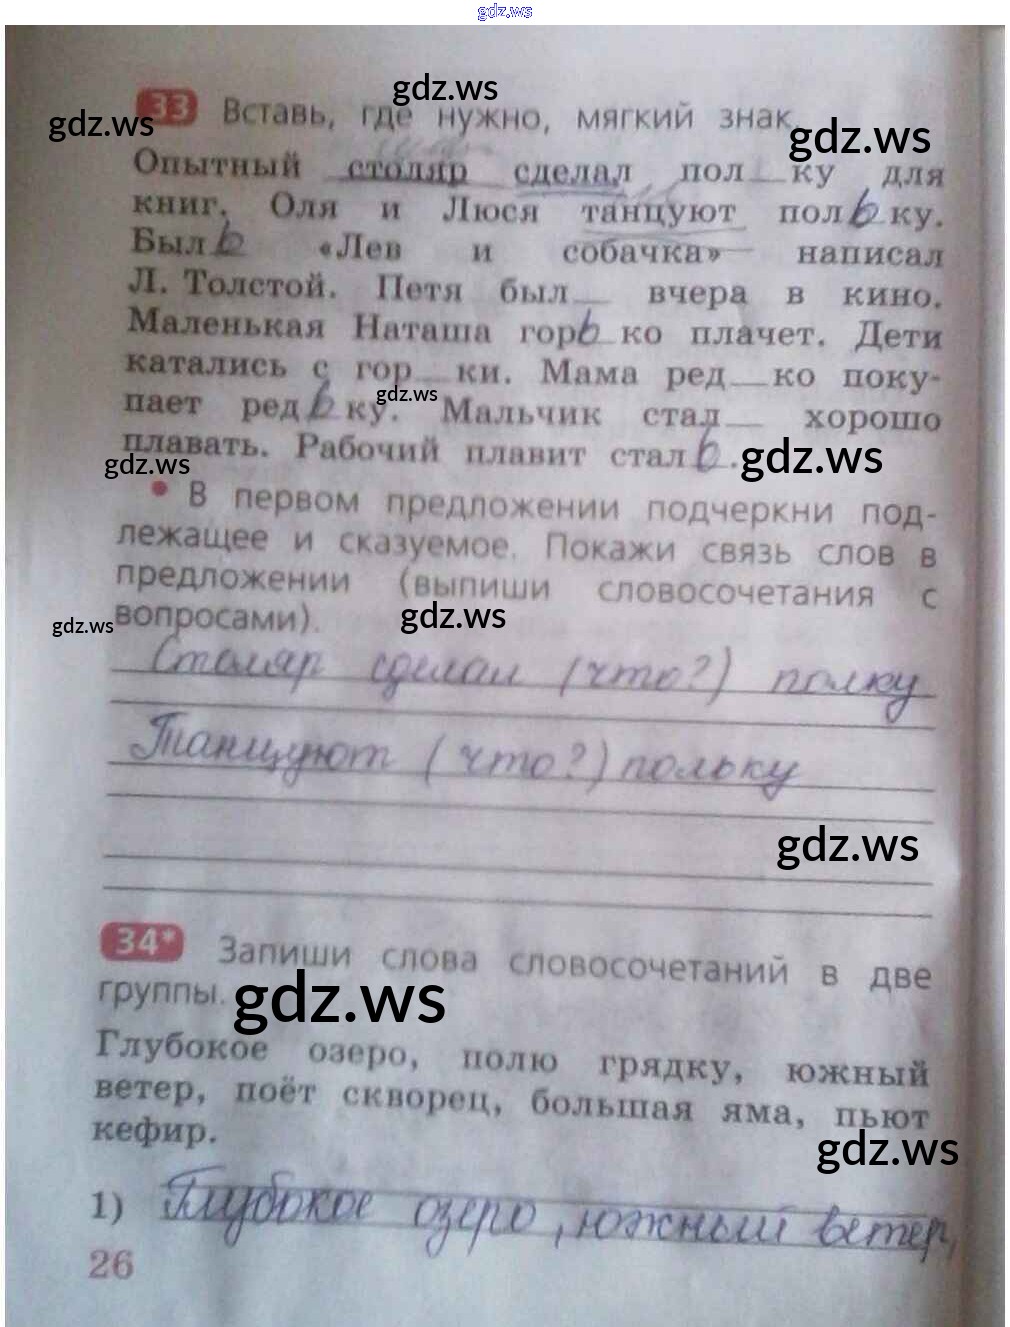 gdz.ws
33 Вставь, где нужно, мягкий знак.
gdz.ws
gdz.ws
gdz.ws
Опытный столяр сделал пол__ку для
книг. Оля и Люся танцуют польку.
Быль «Лев и собачка» написал
Л. Толстой. Петя был__ вчера в кино.
Маленькая Наташа горько плачет. Дети
катались с гор__ки. Мама ред__ко поку-
gdz.ws
пает редьку. Мальчик стал__ хорошо
плавать. Рабочий плавит сталь.
gdz.ws
gdz.ws
• В первом предложении подчеркни под-
лежащее и сказуемое. Покажи связь слов в
предложении (выпиши словосочетания с
вопросами).
gdz.ws
gdz.ws
Столяр сделал (что?) полку
Танцуют (что?) польку
gdz.ws
34* Запиши слова словосочетаний в две
группы.
gdz.ws
Глубокое озеро, полю грядку, южный
ветер, поёт скворец, большая яма, пьют
кефир.
gdz.ws
1) Глубокое озеро, южный ветер,
26